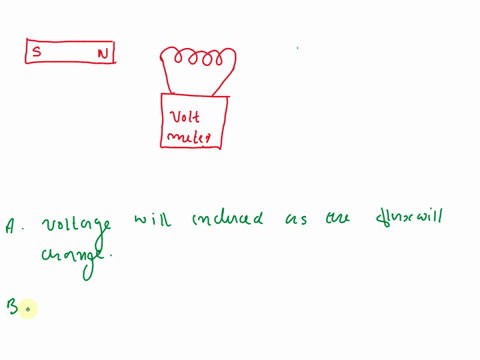 S N
Volt
meter
A. Voltage will induced as the flux will
change.
B.